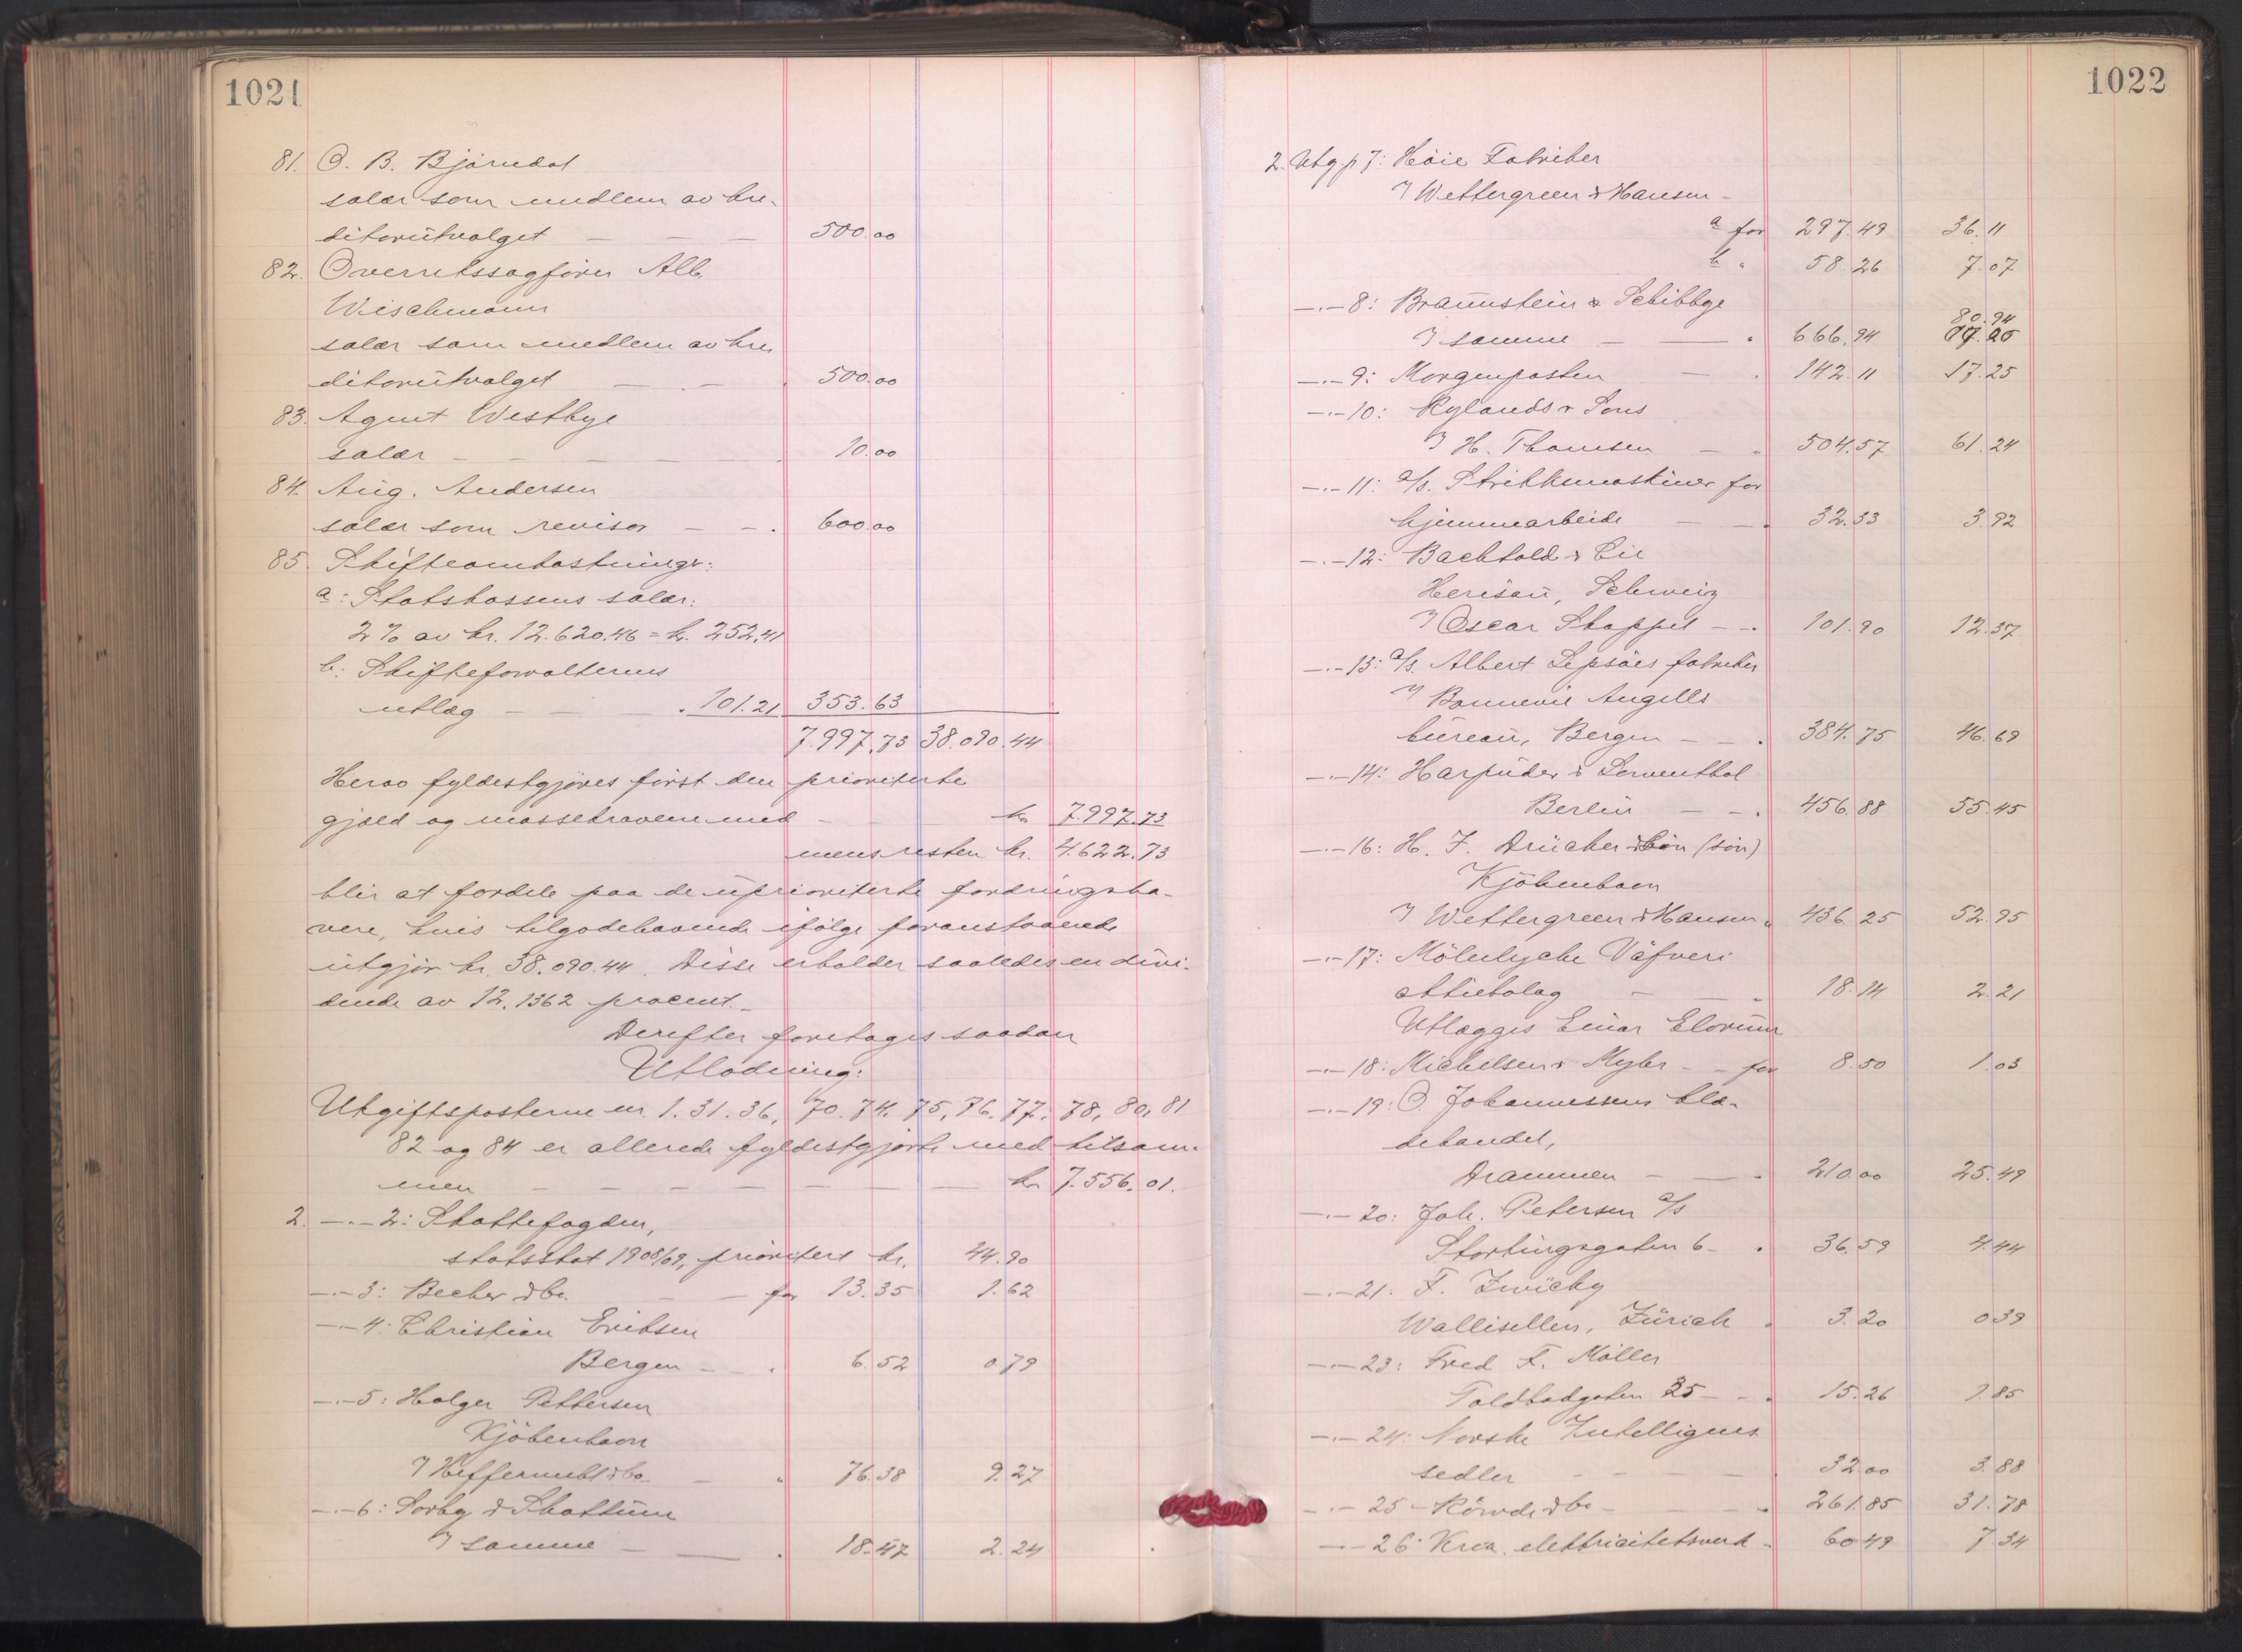 1021
81. O. B. Björndal
salær som medlem av kre-
ditorutvalget — — — 500.00
82. Overretssagfører Alb.
Wischmann
salær som medlem av kre
ditorutvalget — . — . 500.00
83. Agent Westbye
salær — — — — — . 10.00
84. Aug. Andersen
salær som revisor — — . 600.00
85. Skifteomkostninger:
a: Statskassens salær:
2% av kr. 12.620.46 = kr. 252.41
b: Skifteforvalterens
utlæg — — . 101.21 353.63
7.997.73 38.090.44
Herav fyldestgjøres først den prioriterte
gjæld og massekravene med — — kr 7.997.73
mens resten kr. 4.622.73
blir at fordele paa de uprioriterte fordringsha-
vere, hvis tilgodehavende ifølge foranstaaende
utgjør kr. 38.090.44. Disse erholder saaledes en divi-
dende av 12.1362 procent.—
Derefter foretages saadan
Utlodning:
Utgiftsposterne nr. 1. 31. 36, 70. 74. 75, 76. 77. 78, 80, 81
82 og 84 er allerede fyldestgjorte med tilsam-
men — — — — — — — kr 7.556.01.
2. —.— 2: Skattefogden,
statsskat 1908/09, prioritert kr. 44.90
—.— 3: Becker & Co. — — for 13.35 1.62
—.— 4: Christian Eriksen
Bergen — . 6.52 0.79
—.— 5: Holger Pettersen
Kjöbenhavn
& Heffermehl & Co — " 76.38 9.27
—.— 6: Sørby & Skattum
& samme — — . 18.47 2.24
1022
2. Utg.p 7: Höie Fabriker
& Wettergreen & Hansen —
a for 297.49 36.11
b " 58.26 7.07
—.— 8: Braunstein & Schibbye
80.94
& samme — — " 666.94
—.— 9: Morgenposten — . 142.11 17.25
—.— 10: Rylands & Sons
& H. Thomsen — " 504.57 61.24
—.— 11: a/s. Strikkemaskiner for
hjemmearbeide — — . 32.33 3.92
—.— 12: Bachtold & Cie
Herisau, Schweiz
& Oscar Stappel — — . 101.90 12.37
—.— 13: a/s. Albert Lepsöes fabriker
& Bonnevie Angells
bureau, Bergen — — . 384.75 46.69
—.— 14: Harpuder & Loewenthal
Berlin — — . 456.88 55.45
—.— 16: H. F. Drücker & (sön)
Kjöbenhavn
& Wettergreen & Hansen " 436.25 52.95
—.— 17: Mölnlycke Väfveri
aktiebolag — — " 18.14 2.21
Utlægges Einar
—.— 18: Michelsen & Myhr — — for 8.50 1.03
—.— 19: O. Johannessens bla-
dehandel,
Drammen — — . 210.00 25.49
—.— 20: Joh. Petersen a/s
Stortingsgaten 6 — . 36.59 4.44
—.— 21: F. Zwicky
Wallisellen, Zürich " 3.20 0.39
—.— 23: Fred F. Möller
Toldbodgaten 35 — — . 15.26 1.85
—.— 24: Norske Intelligens
sedler — — — — . 32.00 3.88
—.— 25 — Rörvde & Co — — 261.85 31.78
—.— 26: Kra. elektricitetsverk — 60.49 7.34